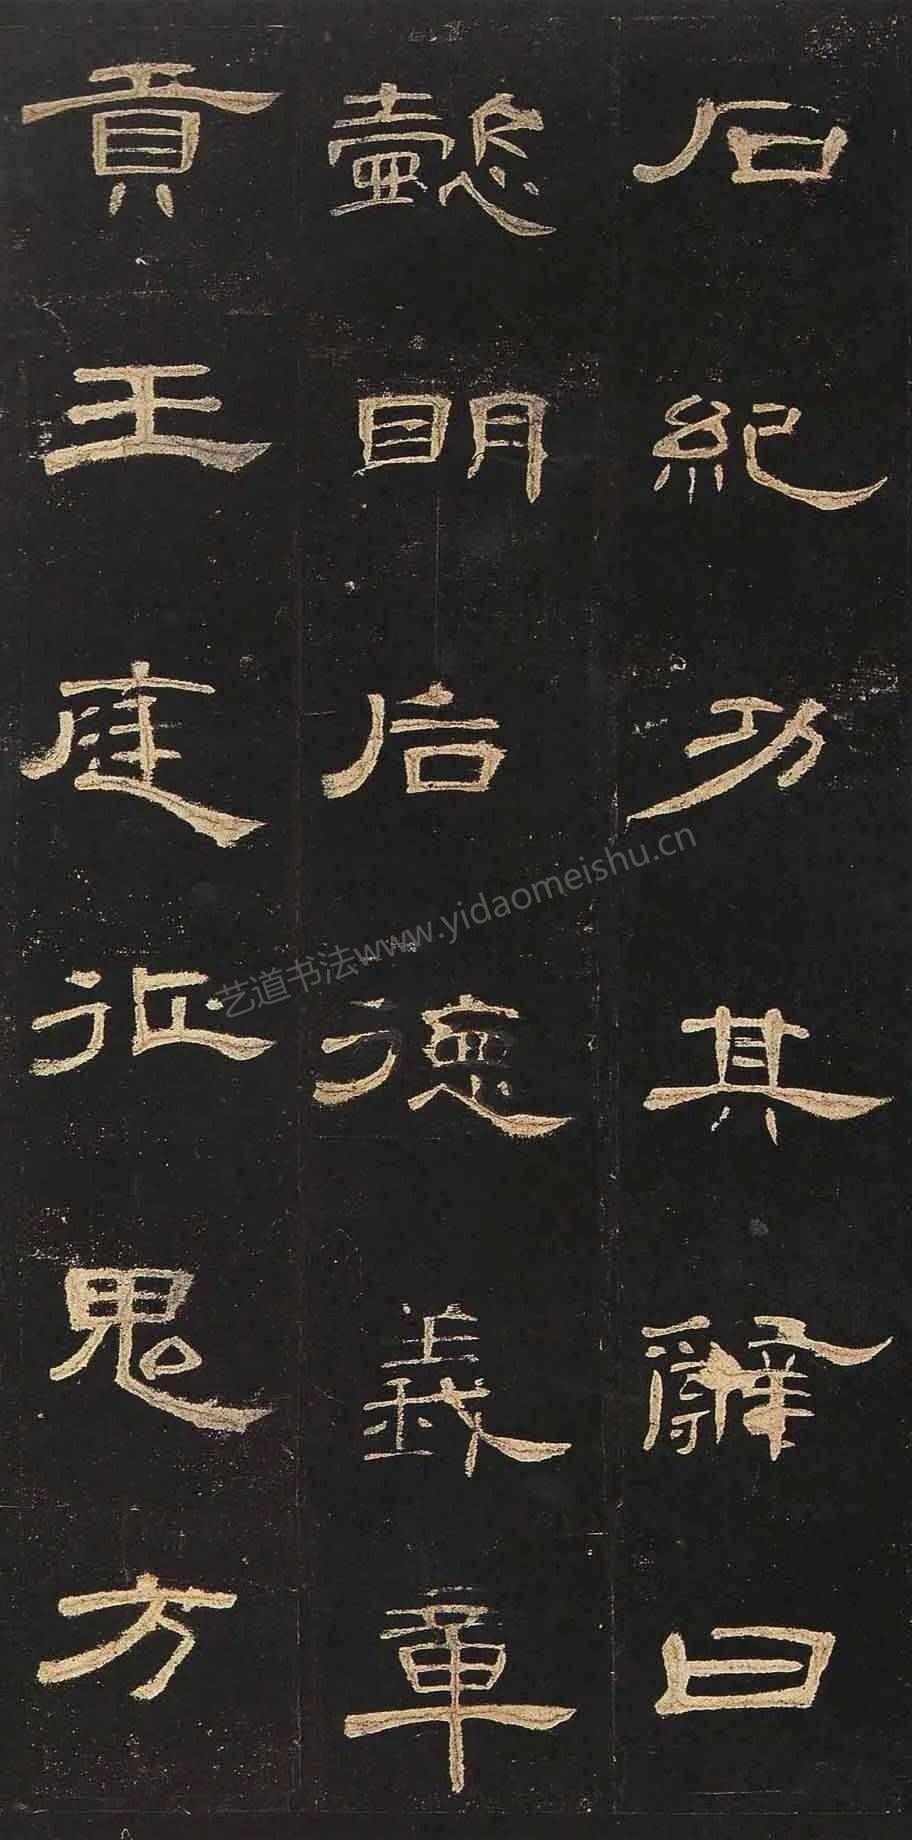 石紀功其辭曰
懿明后德義章
貢王庭征鬼方
艺道书法www.yidaomeishu.cn